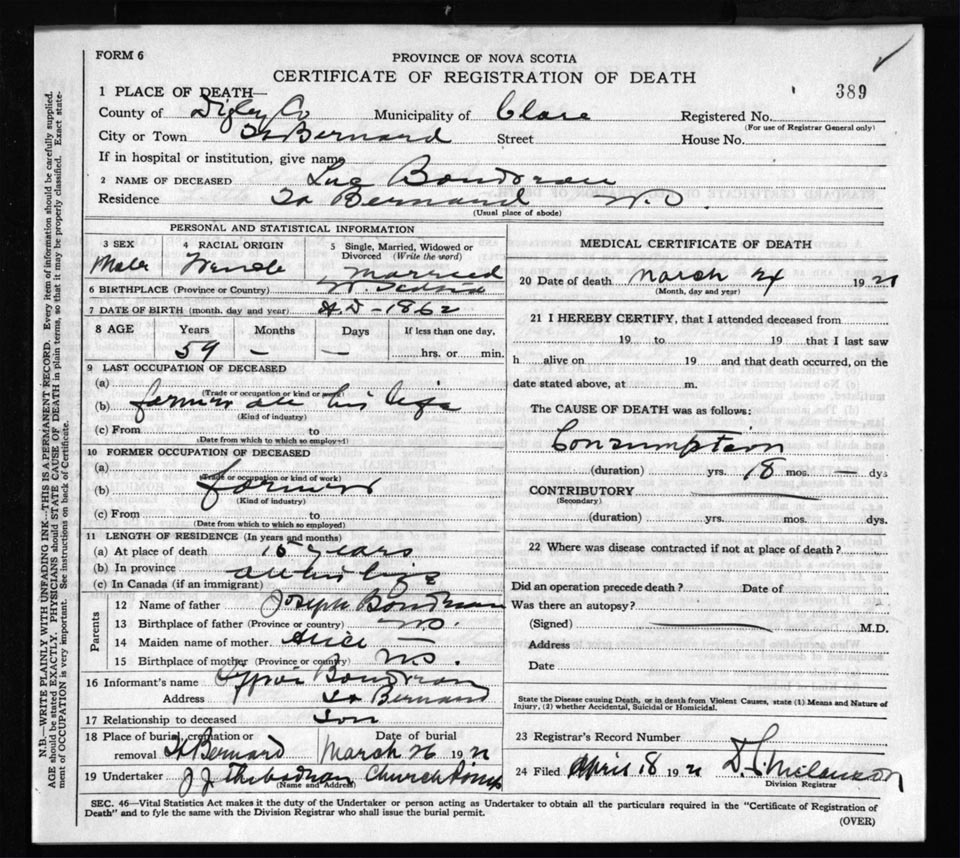 FORM 6
PROVINCE OF NOVA SCOTIA
CERTIFICATE OF REGISTRATION OF DEATH
389
1 PLACE OF DEATH—
County of Digby Co Municipality of Clare Registered No.
(For use of Registrar General only)
City or Town St Bernard Street House No.
If in hospital or institution, give name
2 NAME OF DECEASED Luc Boudreau
Residence St Bernard N.S.
(Usual place of abode)
PERSONAL AND STATISTICAL INFORMATION
3 SEX 4 RACIAL ORIGIN 5 Single, Married, Widowed or Divorced (Write the word)
Male French Married
6 BIRTHPLACE (Province or Country) N. Scotia
7 DATE OF BIRTH (month, day and year) A.D - 1862
8 AGE Years Months Days If less than one day,
59 — — hrs. or min.
9 LAST OCCUPATION OF DECEASED
(a)
(Trade or occupation or kind or work)
(b) farmer all his life
(Kind of industry)
(c) From to
(Date from which to which so employed)
10 FORMER OCCUPATION OF DECEASED
(a)
(Trade or occupation or kind of work)
(b) farmer
(Kind of industry)
(c) From to
(Date from which to which so employed)
11 LENGTH OF RESIDENCE (In years and months)
(a) At place of death 15 years
(b) In province all his life
(c) In Canada (if an immigrant)
Parents
12 Name of father Joseph Boudreau
13 Birthplace of father (Province or country) N.S.
14 Maiden name of mother Alice —
15 Birthplace of mother (Province or country) N.S.
16 Informant's name Boudreau
Address St Bernard
17 Relationship to deceased Son
18 Place of burial, cremation or Date of burial
removal St Bernard March 26 1921
19 Undertaker J J Thibodeau Church Point
(Name and Address)
MEDICAL CERTIFICATE OF DEATH
20 Date of death March 24 1921
(Month, day and year)
21 I HEREBY CERTIFY, that I attended deceased from
19 to 19 that I last saw
h alive on 19 and that death occurred, on the
date stated above, at m.
The CAUSE OF DEATH was as follows:
Consumption
(duration) yrs. 18 mos. — dys
CONTRIBUTORY
(Secondary)
(duration) yrs. mos. dys.
22 Where was disease contracted if not at place of death?
Did an operation precede death? Date of
Was there an autopsy?
(Signed) M.D.
Address
Date
State the Disease causing Death, or in death from Violent Causes, state (1) Means and Nature of
Injury, (2) whether Accidental, Suicidal or Homicidal.
23 Registrar's Record Number
24 Filed April 18 1921 Melanson
Division Registrar
SEC. 46—Vital Statistics Act makes it the duty of the Undertaker or person acting as Undertaker to obtain all the particulars required in the "Certificate of Registration of
Death" and to fyle the same with the Division Registrar who shall issue the burial permit.
(OVER)
N.B.—WRITE PLAINLY WITH UNFADING INK—THIS IS A PERMANENT RECORD. Every item of information should be carefully supplied.
AGE should be stated EXACTLY. PHYSICIANS should STATE CAUSE OF DEATH in plain terms, so that it may be properly classified. Exact state-
ment of OCCUPATION is very important. See instructions on back of Certificate.